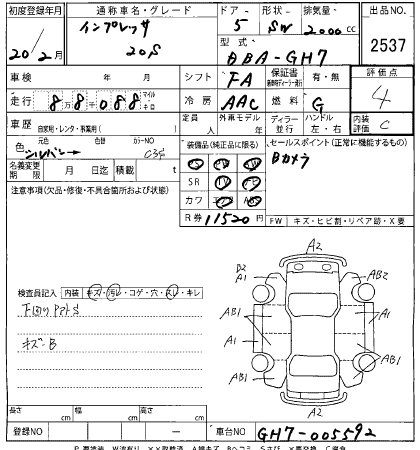 初度登録年月 通称車名・グレード ドア・ 形状・ 排気量 出品NO.
20/2月 インプレッサ 20S 5 SW 2000cc 2537
型式 DBA-GH7
車検 年 月 シフト FA 保証書 有・無 評価点
走行 8 8万 千 0 8 8 マイル キロ 冷房 AAC 燃料 G 4
車歴 自家用・レンタ・事業用( ) 定員 外車モデル ディーラー 並行 ハンドル 左・右 内装評価 C
色 元色 シルバー 色替 カラーNO C3S 装備品(純正品に限る) セールスポイント(正常に機能するもの)
名義変更期限 月 日迄 積載 t Bカメラ
注意事項(欠品・修復・不具合箇所および状態) SR
カワ
R券 11520円 FW キズ・ヒビ割・リペア跡・X要
A2
B2
A1 AB2
AB1 A1
A1 AB1
AB1 AB1
A2
検査員記入 内装 キズ・汚レ・コゲ・穴・スレ・キレ
下回りサアトS
キズ・B
長さ cm 幅 cm 高さ cm
登録NO ー 車台NO GH7-005592